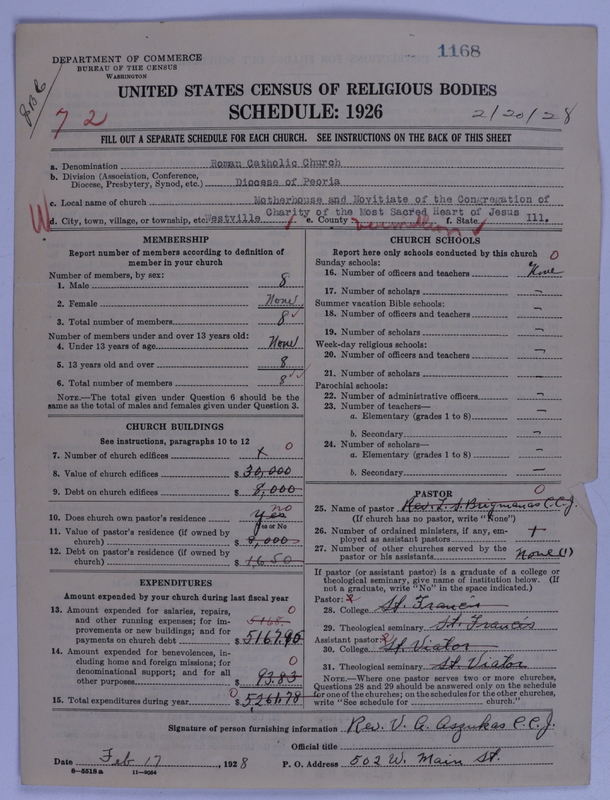 1168
DEPARTMENT OF COMMERCE
BUREAU OF THE CENSUS
WASHINGTON
72
UNITED STATES CENSUS OF RELIGIOUS BODIES
SCHEDULE: 1926
2/20/28
FILL OUT A SEPARATE SCHEDULE FOR EACH CHURCH. SEE INSTRUCTIONS ON THE BACK OF THIS SHEET
a. Denomination Roman Catholic Church
b. Division (Association, Conference, Diocese, Presbytery, Synod, etc.) Diocese of Peoria
c. Local name of church Motherhouse and Novitiate of the Congregation of
Charity of the Most Sacred Heart of Jesus
W d. City, town, village, or township, etc. Westville e. County Vermilion f. State Ill.
MEMBERSHIP
Report number of members according to definition of
member in your church
Number of members, by sex:
1. Male 8
2. Female None
3. Total number of members 8
Number of members under and over 13 years old:
4. Under 13 years of age None
5. 13 years old and over 8
6. Total number of members 8
NOTE.—The total given under Question 6 should be the
same as the total of males and females given under Question 3.
CHURCH BUILDINGS
See instructions, paragraphs 10 to 12
0
7. Number of church edifices
8. Value of church edifices $ 30,000
9. Debt on church edifices $ 8,000
no
10. Does church own pastor's residence Yes
Yes or No
11. Value of pastor's residence (if owned by
church) $ 8,000
12. Debt on pastor's residence (if owned by
church) $ 1,650
EXPENDITURES
Amount expended by your church during last fiscal year
13. Amount expended for salaries, repairs, 0
and other running expenses; for im- 5168
provements or new buildings; and for
payments on church debt $ 5167.95
14. Amount expended for benevolences, in-
cluding home and foreign missions; for 0
denominational support; and for all
other purposes $ 93.83
15. Total expenditures during year 0 $ 5,261.78
CHURCH SCHOOLS
Report here only schools conducted by this church 0
Sunday schools:
16. Number of officers and teachers None
17. Number of scholars
Summer vacation Bible schools:
18. Number of officers and teachers
19. Number of scholars
Week-day religious schools:
20. Number of officers and teachers
21. Number of scholars
Parochial schools:
22. Number of administrative officers
23. Number of teachers—
a. Elementary (grades 1 to 8)
b. Secondary
24. Number of scholars—
a. Elementary (grades 1 to 8)
b. Secondary
PASTOR 0
25. Name of pastor
(If church has no pastor, write "None")
26. Number of ordained ministers, if any, em-
ployed as assistant pastors
27. Number of other churches served by the
pastor or his assistants None (1)
If pastor (or assistant pastor) is a graduate of a college or
theological seminary, give name of institution below. (If
not a graduate, write "No" in the space indicated.)
Pastor:
28. College St. Francis
29. Theological seminary St. Francis
Assistant pastor:
30. College St. Viator
31. Theological seminary St. Viator
NOTE.—Where one pastor serves two or more churches,
Questions 28 and 29 should be answered only on the schedule
for one of the churches; on the schedules for the other churches,
write "See schedule for church."
Signature of person furnishing information Rev. V. A. Aszukas C.C.J.
Official title
Date Feb 17, 1928 P. O. Address 502 W. Main St.
8—5518a 11—9064